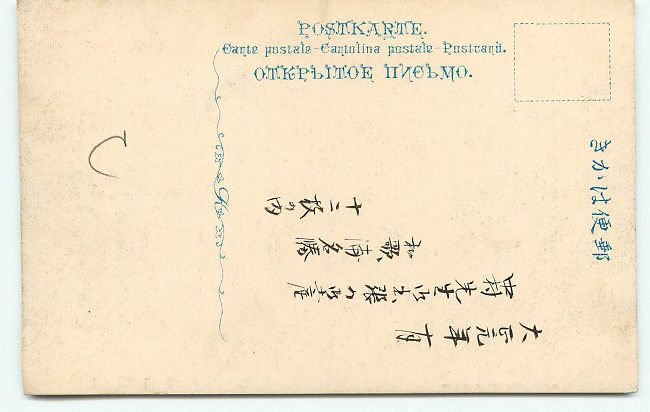 POSTKARTE.
Carte postale–Cartolina postale–Postcard.
ОТКРЫТОЕ ПИСЬМО.
郵便はかき
大正元年
中村先生御出張の御土産
和歌浦名勝
十二枚の内